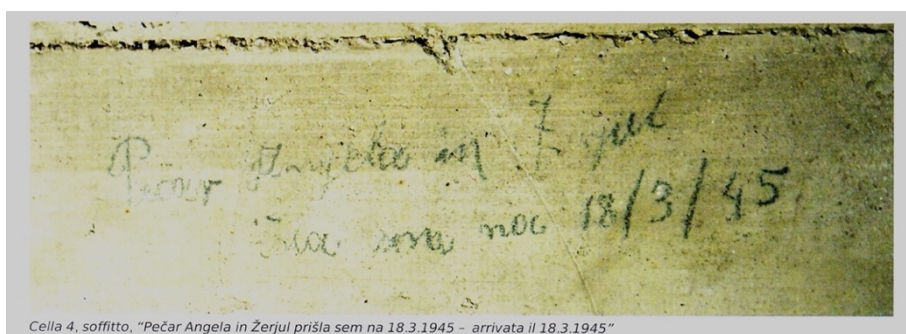 Pečar Angela in Žerjul
sem na 18/3/45
Cella 4, soffitto, “Pečar Angela in Žerjul prišla sem na 18.3.1945 – arrivata il 18.3.1945”